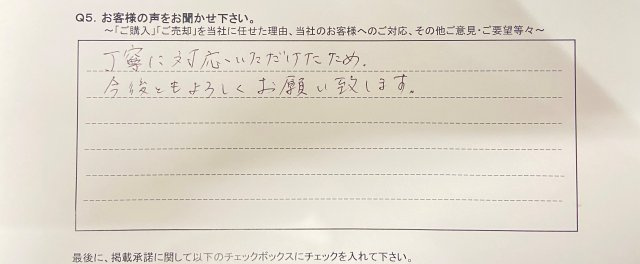 Q5. お客様の声をお聞かせ下さい。
～「ご購入」「ご売却」を当社に任せた理由、当社のお客様へのご対応、その他ご意見・ご要望等々～
丁寧に対応いただけたため。
今後ともよろしくお願い致します。
最後に、掲載承諾に関して以下のチェックボックスにチェックを入れて下さい。